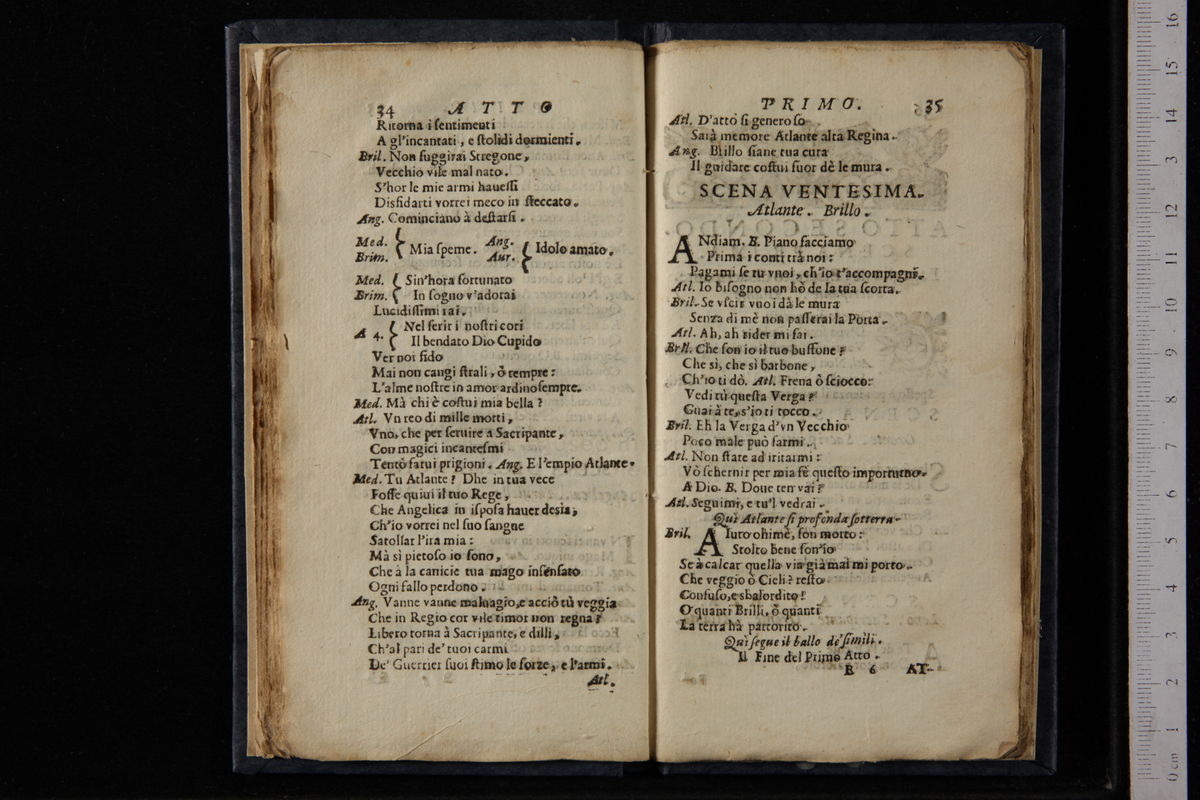 34 ATTO
Ritorna i ſentimenti
A gl'incantati, e ſtolidi dormienti.
Bril. Non fuggirai Stregone,
Vecchio vile mal nato.
S'hor le mie armi haueſſi
Disfidarti vorrei meco in ſteccato.
Ang. Cominciano à deſtarſi.
Med. Brim. { Mia ſpeme. Ang. Aur. { Idolo amato.
Med. { Sin'hora fortunato
Brim. { In ſogno v'adorai
Lucidiſſimi rai.
A 4. { Nel ferir i noſtri cori
Il bendato Dio Cupido
Ver noi fido
Mai non cangi ſtrali, ò tempre:
L'alme noſtre in amor ardino ſempre.
Med. Mà chi è coſtui mia bella?
Atl. Vn reo di mille morti,
Vno, che per ſeruire a Sacripante,
Con magici incanteſmi
Tentò farui prigioni. Ang. E l'empio Atlante.
Med. Tu Atlante? Dhe in tua vece
Foſſe quiui il tuo Rege,
Che Angelica in iſpoſa hauer desia,
Ch'io vorrei nel ſuo ſangue
Satollar l'ira mia:
Mà sì pietoſo io ſono,
Che à la canicie tua mago inſenſato
Ogni fallo perdono.
Ang. Vanne vanne maluagio, e acciò tù veggia
Che in Regio cor vile timor non regna?
Libero torna à Sacripante, e dilli,
Ch'al pari de' tuoi carmi
De' Guerrier ſuoi ſtimo le forze, e l'armi.
Atl.
PRIMO. 35
Atl. D'atto ſi generoſo
Sarà memore Atlante alta Regina.
Ang. Brillo ſiane tua cura
Il guidare coſtui fuor dè le mura.
SCENA VENTESIMA.
Atlante. Brillo.
ANdiam. B. Piano facciamo
Prima i conti trà noi:
Pagami ſe tu vuoi, ch'io t'accompagni.
Atl. Io biſogno non hò de la tua ſcorta.
Bril. Se vſcir vuoi dà le mura
Senza di mè non paſſerai la Porta.
Atl. Ah, ah rider mi fai.
Bril. Che ſon io il tuo buffone?
Che sì, che sì barbone,
Ch'io ti dò. Atl. Frena ò ſciocco:
Vedi tù queſta Verga?
Guai à te, s'io ti tocco.
Bril. Eh la Verga d'vn Vecchio
Poco male può farmi.
Atl. Non ſtare ad iritarmi:
Vò ſchernir per mia fè queſto importuno.
A Dio. B. Doue ten vai?
Atl. Seguimi, e tu'l vedrai.
Quì Atlante ſi profonda ſotterra.
Bril. AIuto ohimè, ſon morto:
Stolto bene ſon'io
Se à calcar quella via già mai mi porto.
Che veggio ò Cieli? reſto
Confuſo, e sbalordito!
O quanti Brilli, ò quanti
La terra hà partorito.
Quì ſegue il ballo de' ſimili.
Il Fine del Primo Atto.
B 6 AT-
16
15
14
13
12
11
10
9
8
7
6
5
4
3
2
1
0 cm